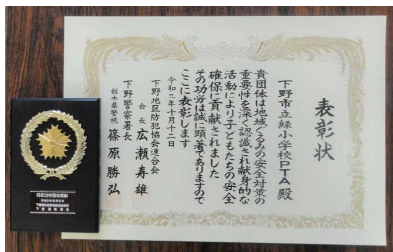 表彰状
下野市立緑小学校PTA殿
貴団体は地域ぐるみの安全対策の
重要性を深く認識され献身的な
活動により子どもたちの安全
確保に貢献されました
その功労は誠に顕著でありますので
ここに表彰します
令和二年十月十二日
下野地区防犯協会連合会
会長 広瀬寿雄
下野警察署長
栃木県警視 篠原勝弘